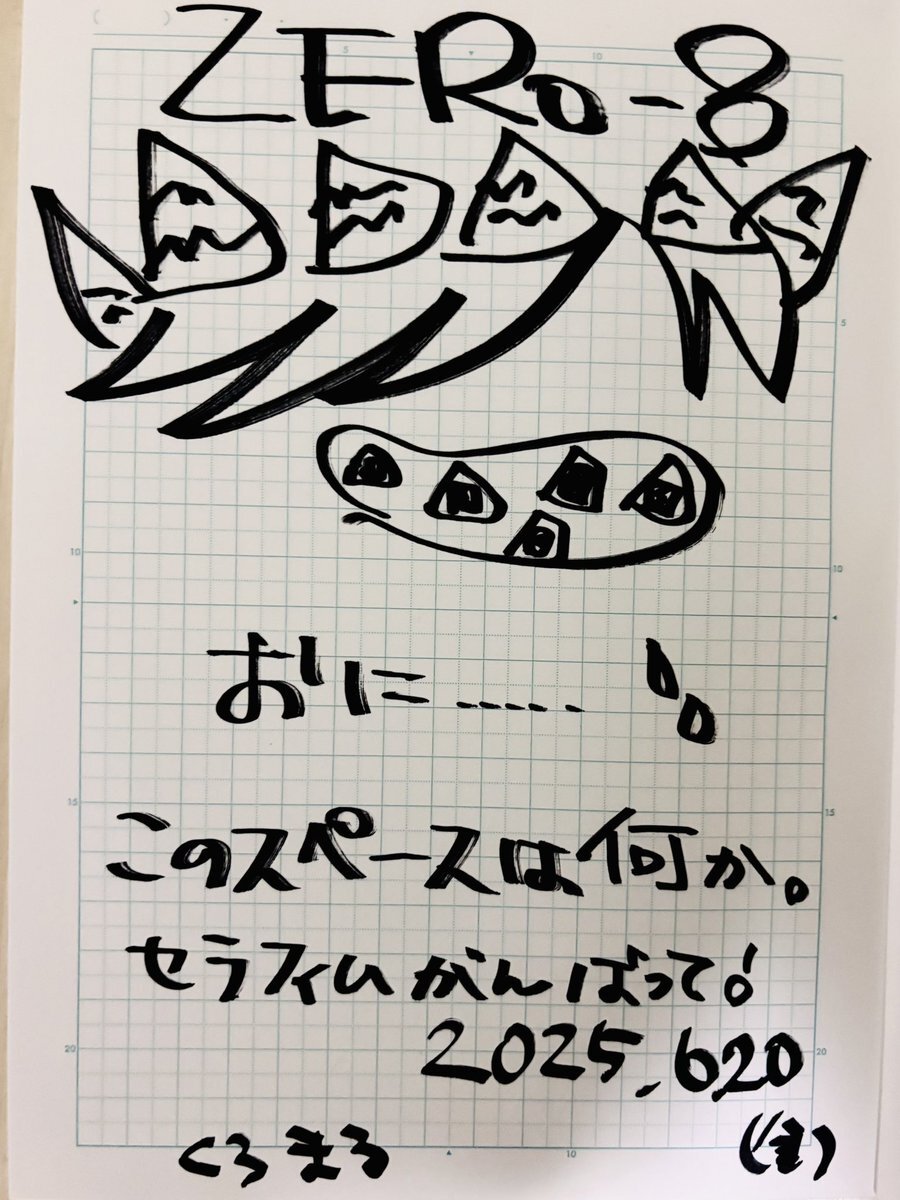 ZERO-8
おに……!。
このスペースは何か。
セラフィムがんばって!
2025.620
くろまる
(金)